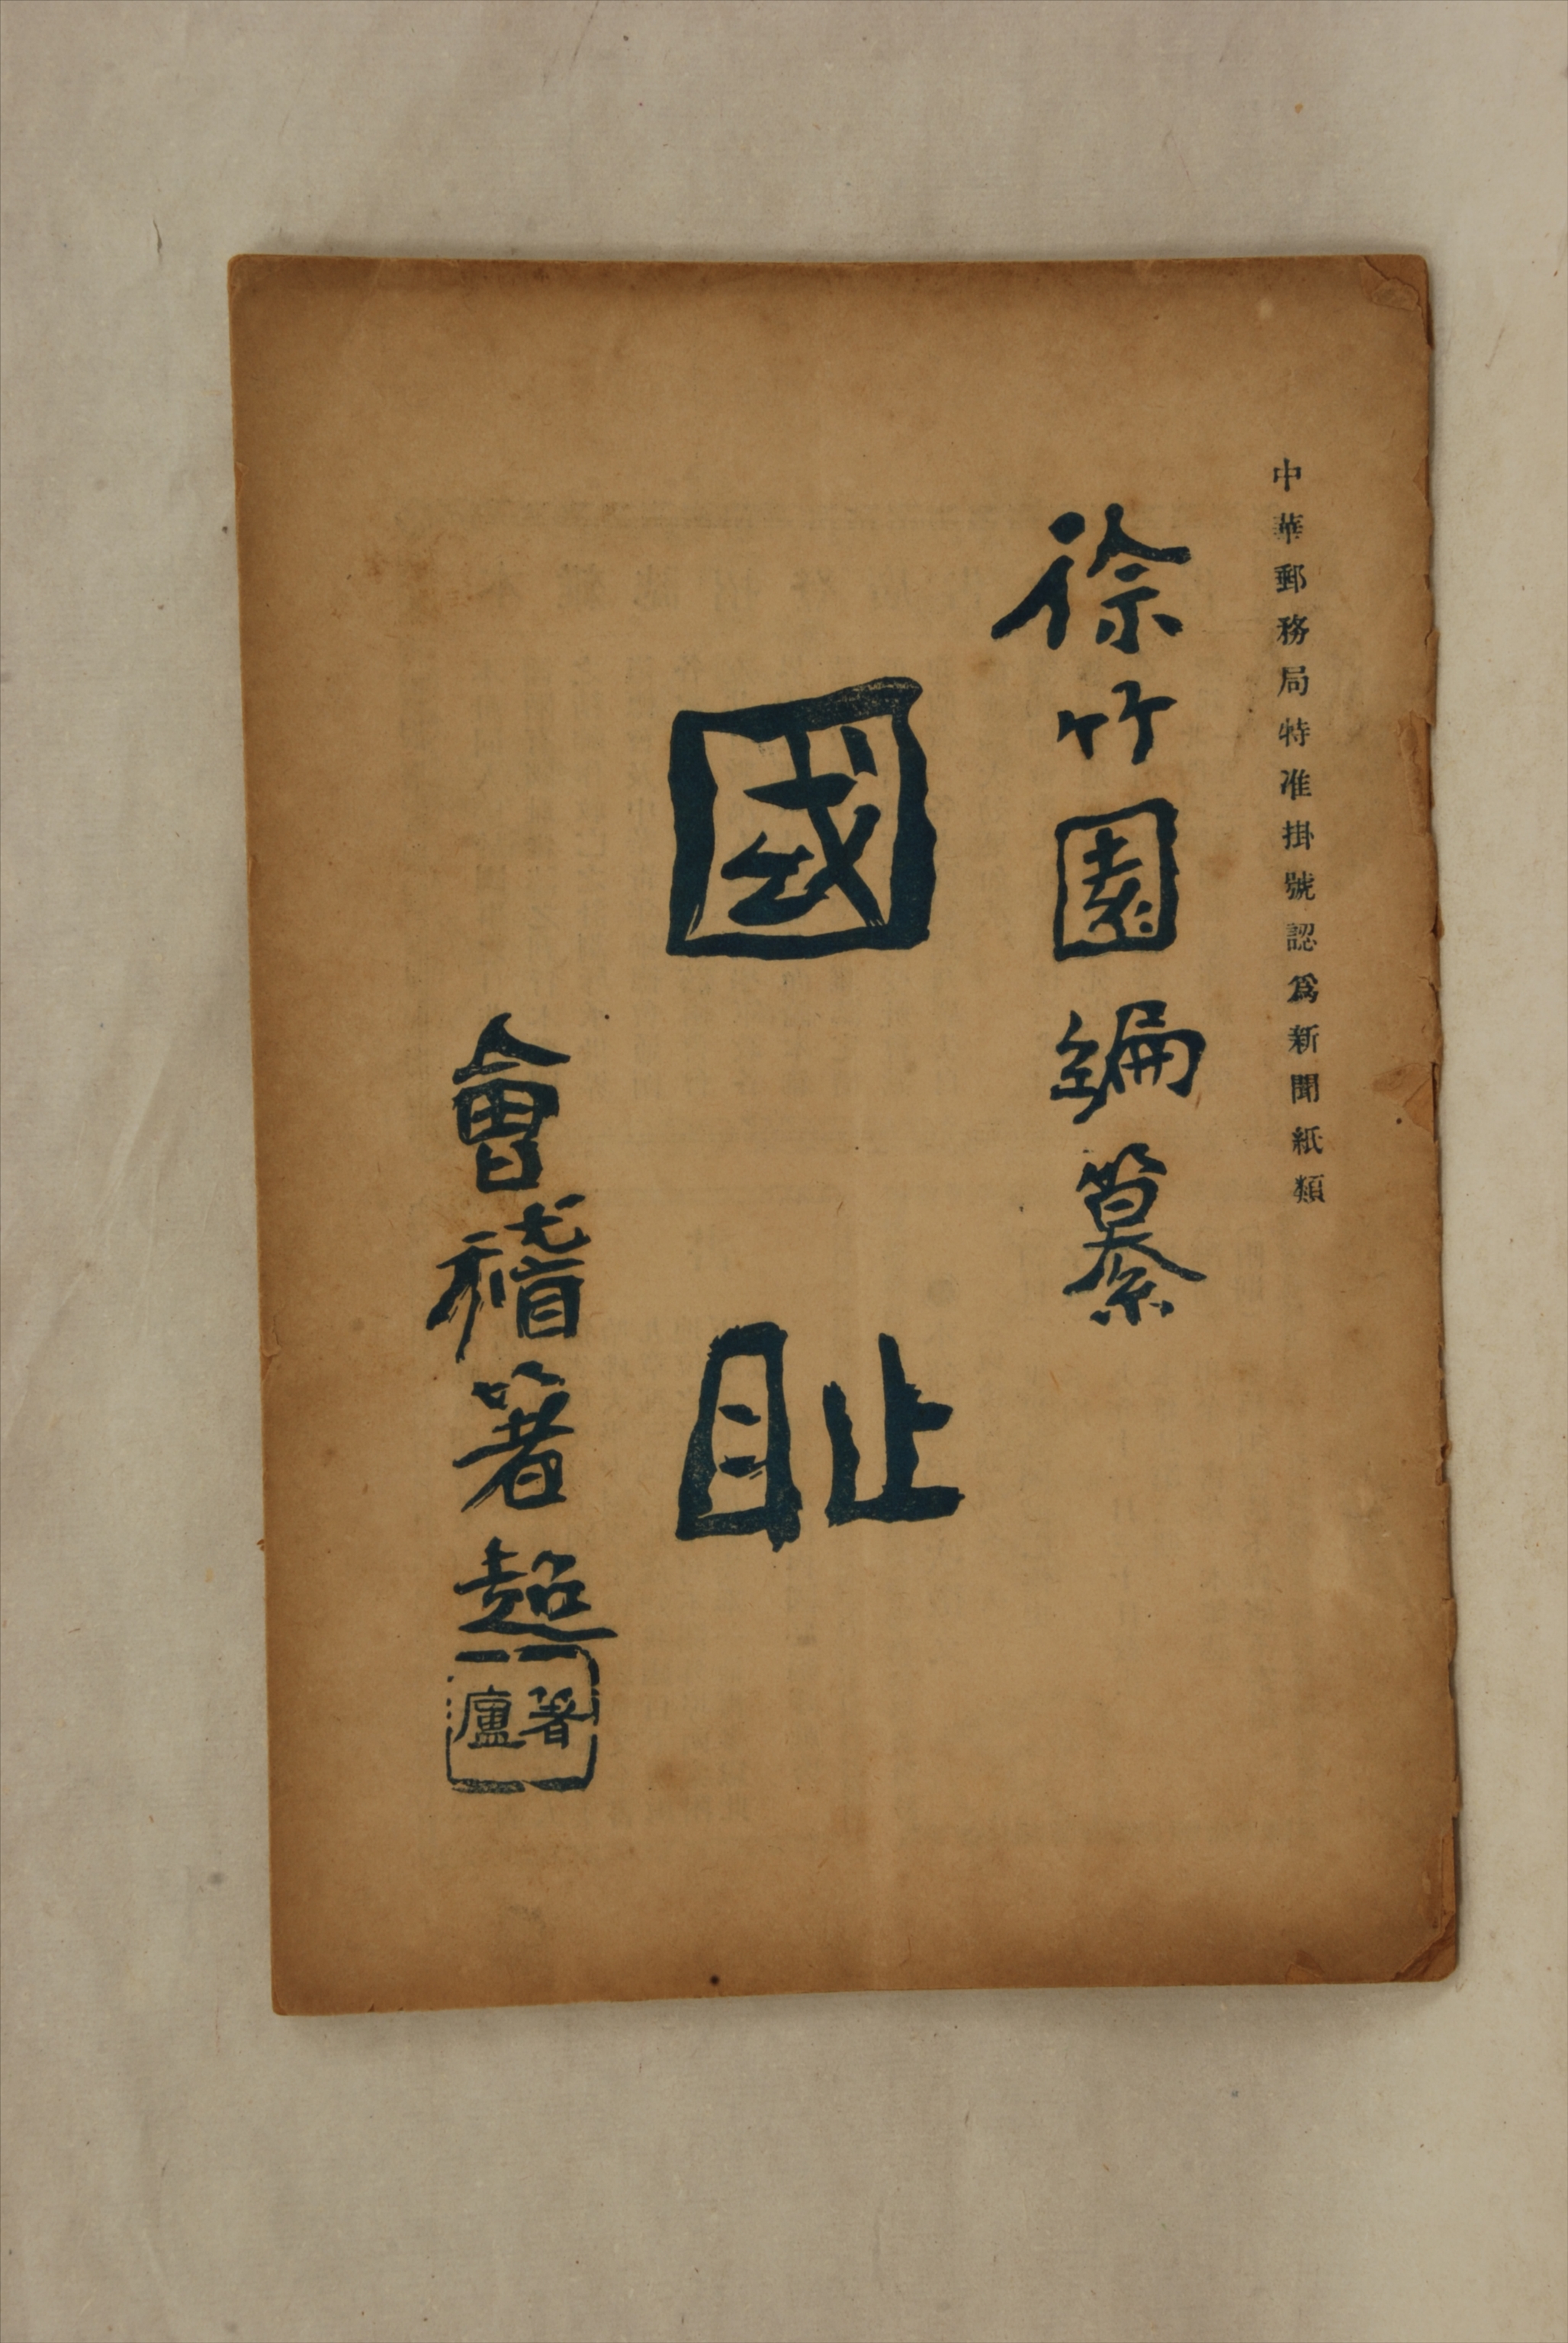 中華郵務局特准掛號認爲新聞紙類
徐竹園編纂
國恥
會稽箸超
箸廬